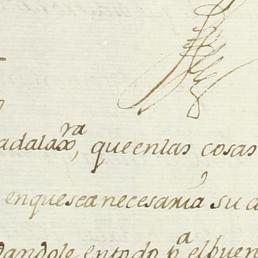 adalax^ra, que en las cosas
en que sea necesaria su a
dandole en todo p^a el buen